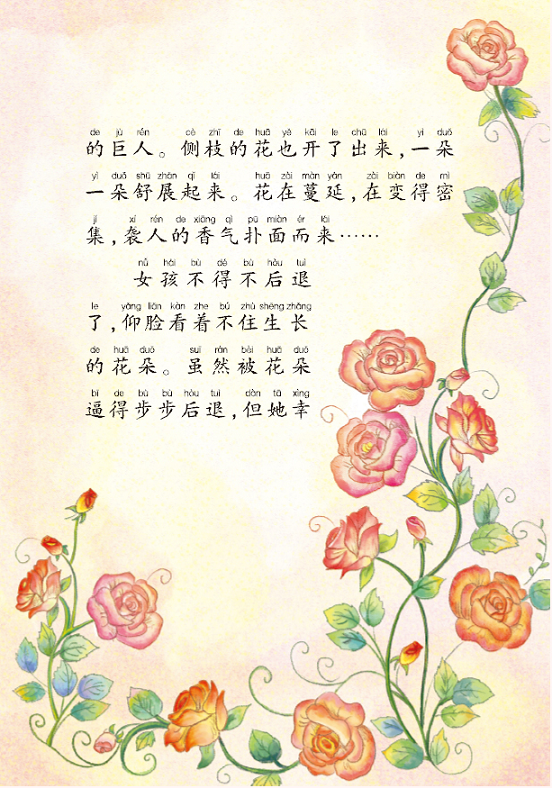 de jù rén cè zhī de huā yě kāi le chū lái yì duǒ
的巨人。侧枝的花也开了出来,一朵
yì duǒ shū zhǎn qǐ lái huā zài màn yán zài biàn de mì
一朵舒展起来。花在蔓延,在变得密
jí xí rén de xiāng qì pū miàn ér lái
集,袭人的香气扑面而来……
nǚ hái bù dé bù hòu tuì
女孩不得不后退
le yǎng liǎn kàn zhe bú zhù shēng zhǎng
了,仰脸看着不住生长
de huā duǒ suī rán bèi huā duǒ
的花朵。虽然被花朵
bī de bù bù hòu tuì dàn tā xìng
逼得步步后退,但她幸